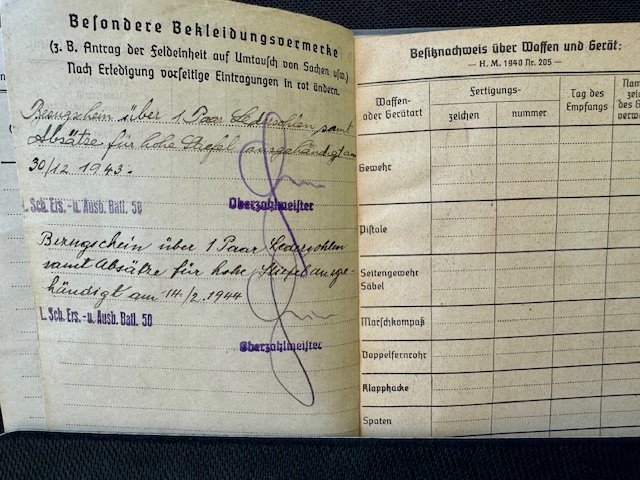 Besondere Bekleidungsvermerke
(z. B. Antrag der Feldeinheit auf Umtausch von Sachen usw.)
Nach Erledigung vorseitige Eintragungen in rot ändern.
Bezugschein über 1 Paar Ledersohlen samt
Absätze für hohe Stiefel ausgehändigt am
30/12. 1943.
Sch. Ers.-u. Ausb. Batl. 50
Oberzahlmeister
Bezugschein über 1 Paar Ledersohlen
samt Absätze für hohe Stiefel ausge-
händigt am 14/2. 1944
I. Sch. Ers.-u. Ausb. Batl. 50
Oberzahlmeister
Besitznachweis über Waffen und Gerät:
— H. M. 1940 Nr. 205 —
Waffen-
oder Gerätart
Fertigungs-
zeichen
nummer
Tag des
Empfangs
Gewehr
Pistole
Seitengewehr
Säbel
Marschkompaß
Doppelfernrohr
Klapphacke
Spaten